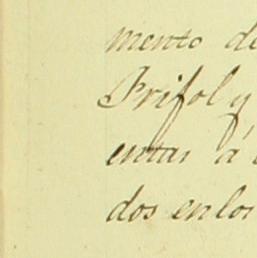 mento de
Prifol y
entas á
dos en los